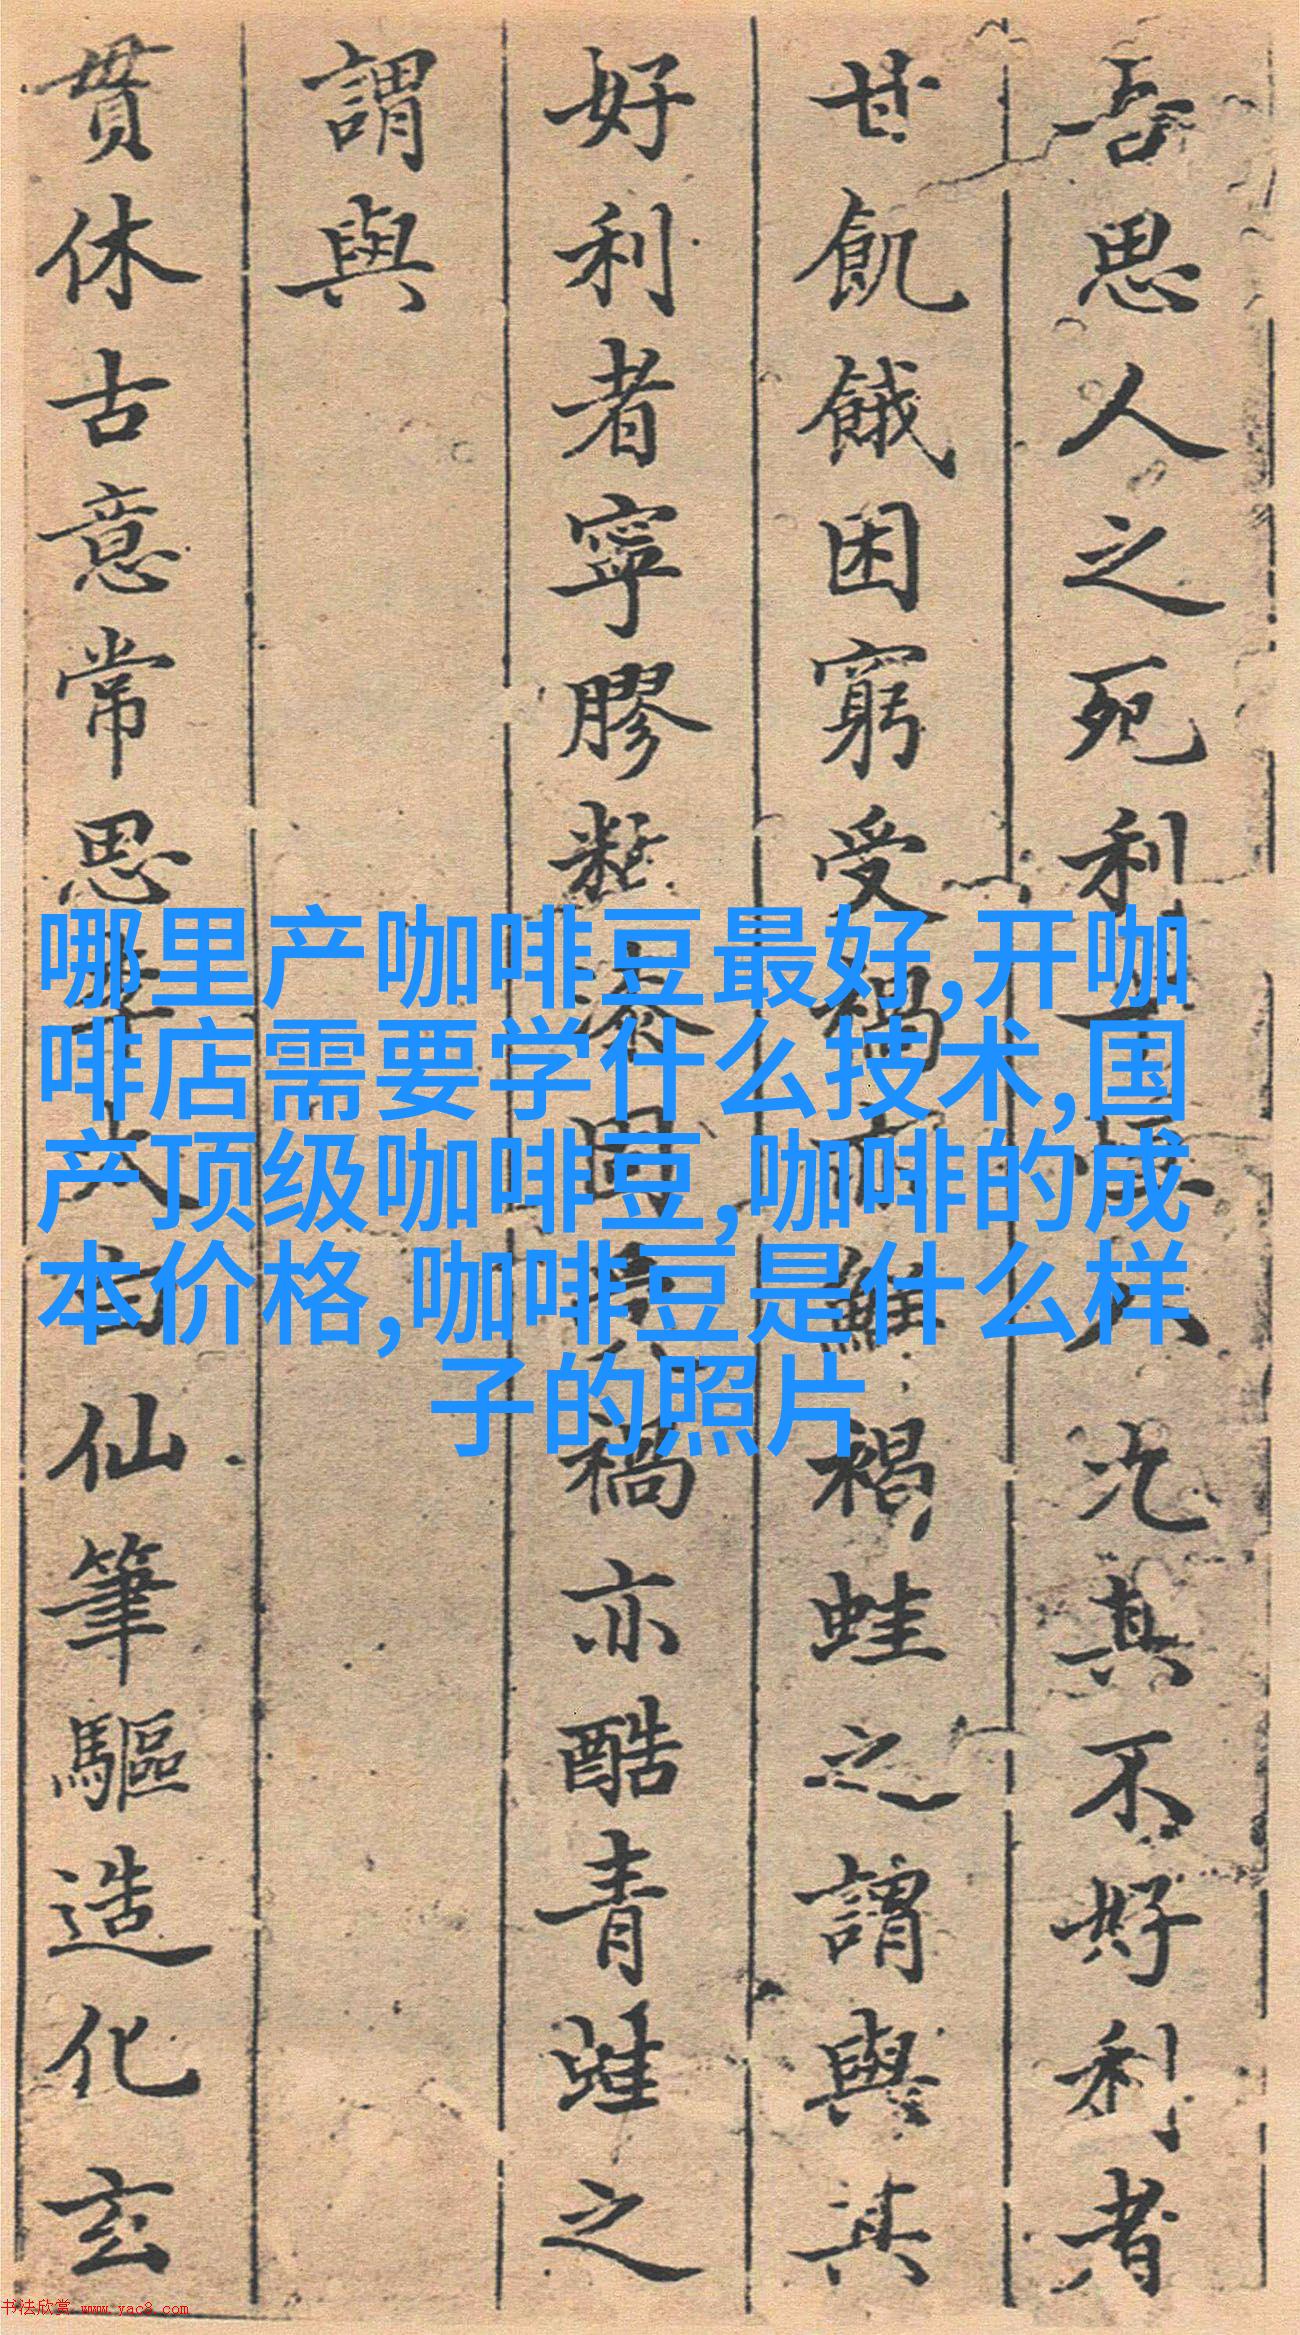 吾思人之死利
甘飢餓困窮受禍
好利者寧膠
謂與
貫休古意常思
哪里产咖啡豆最好,开咖
啡店需要学什么技术,国
产顶级咖啡豆,咖啡的成
本价格,咖啡豆是什么样
子的照片
其不好利者
褐蛙之謂與其
禍亦酷青蛙之
仙筆驅造化玄
书法欣赏 www.yac8.com